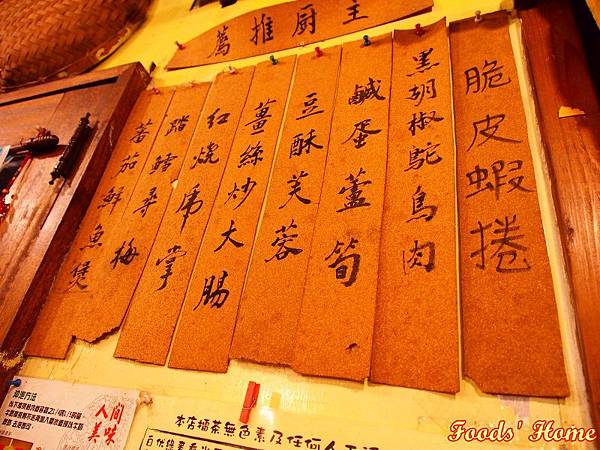 主厨推薦
脆皮蝦捲
黑胡椒鴕鳥肉
鹹蛋蘆筍
豆酥芙蓉
薑絲炒大腸
紅燒虎掌
踏鱈尋梅
蕃茄鮮魚煲
人間
美味
本店擂茶無色素及任何人工
Foods' Home